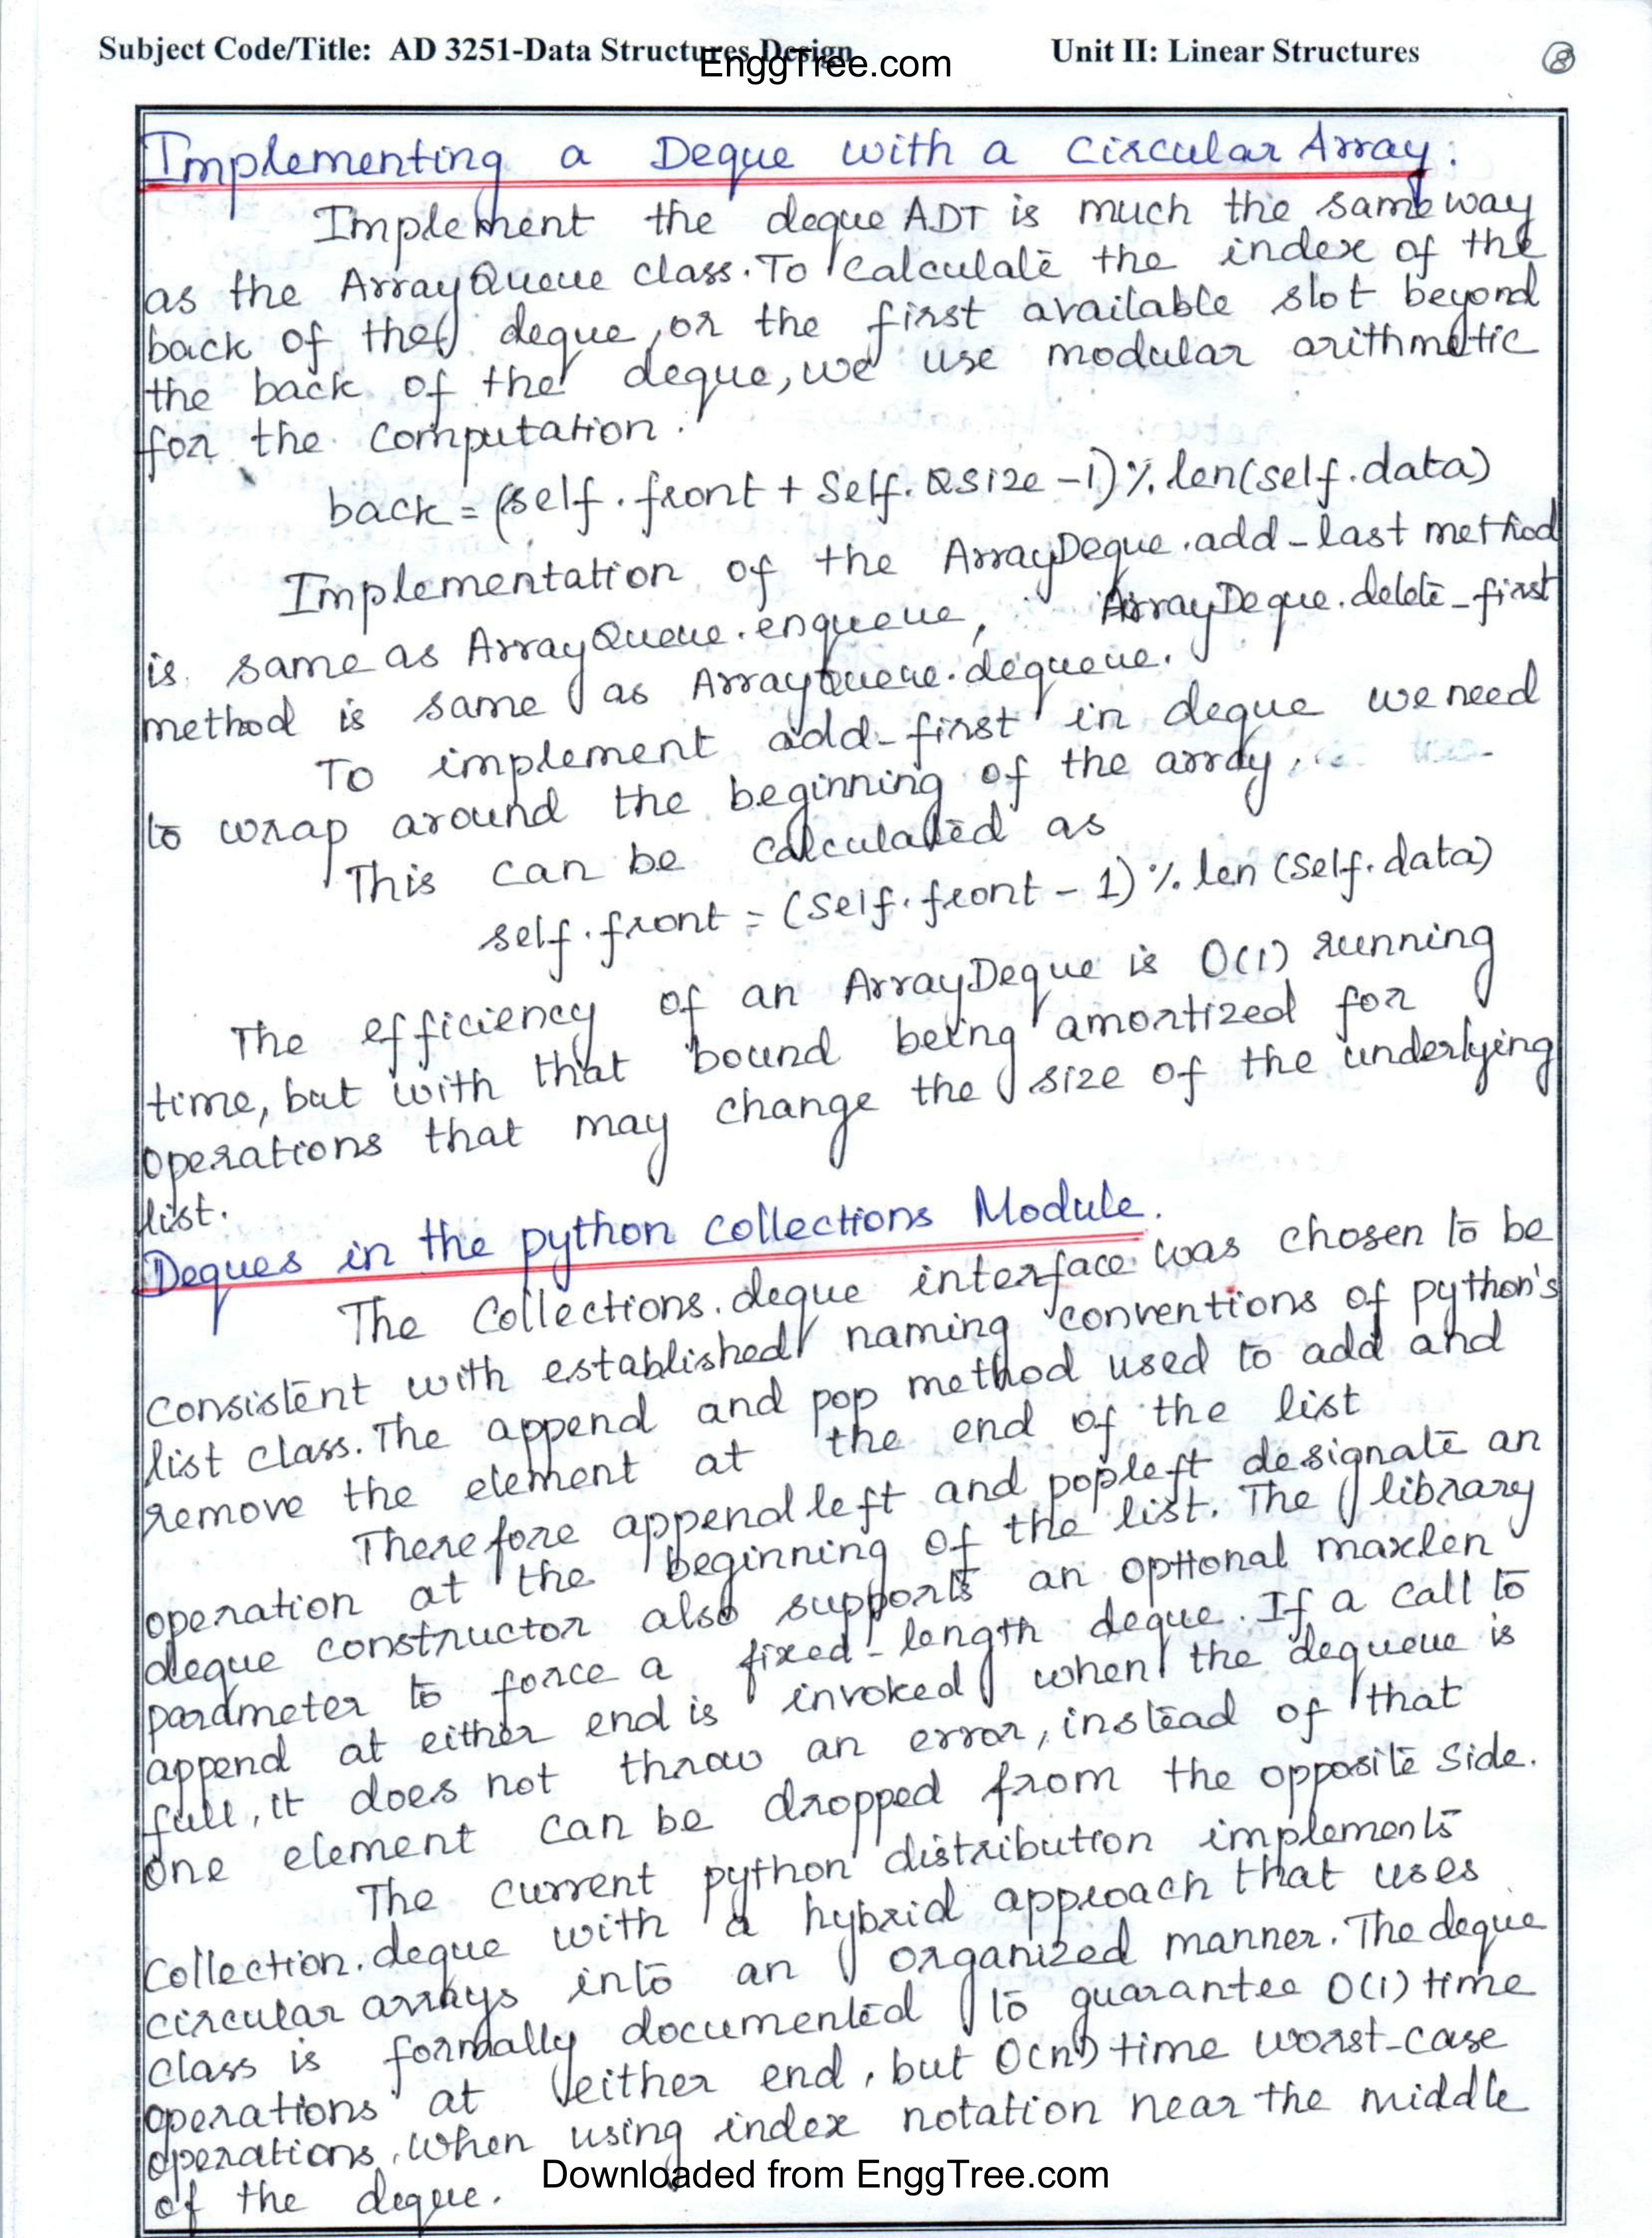 Subject Code/Title: AD 3251-Data Structures Design Unit II: Linear Structures 8
EnggTree.com
Implementing a Deque with a Circular Array.
Implement the deque ADT is much the same way
as the ArrayQueue class. To calculate the index of the
back of the deque, or the first available slot beyond
the back of the deque, we use modular arithmetic
for the computation.
back = (self.front + Self.Qsize - 1) % len(self.data)
Implementation of the ArrayDeque.add-last method
is same as ArrayQueue.enqueue, ArrayDeque.delete-first
method is same as ArrayQueue.dequeue.
To implement add-first in deque we need
to wrap around the beginning of the array.
This can be calculated as
self.front = (Self.front - 1) % len (Self.data)
The efficiency of an ArrayDeque is O(1) running
time, but with that bound being amortized for
operations that may change the size of the underlying
list.
Deques in the python collections Module.
The Collections.deque interface was chosen to be
consistent with established naming conventions of python's
list class. The append and pop method used to add and
remove the element at the end of the list
Therefore appendleft and popleft designate an
operation at the beginning of the list. The library
deque constructor also supports an optional maxlen
parameter to force a fixed-length deque. If a call to
append at either end is invoked when the dequeue is
full, it does not throw an error, instead of that
one element can be dropped from the opposite side.
The current python distribution implements
Collection.deque with a hybrid approach that uses
circular arrays into an organized manner. The deque
class is formally documented to guarantee O(1) time
operations at either end, but O(n) time worst-case
operations, when using index notation near the middle
of the deque.
Downloaded from EnggTree.com